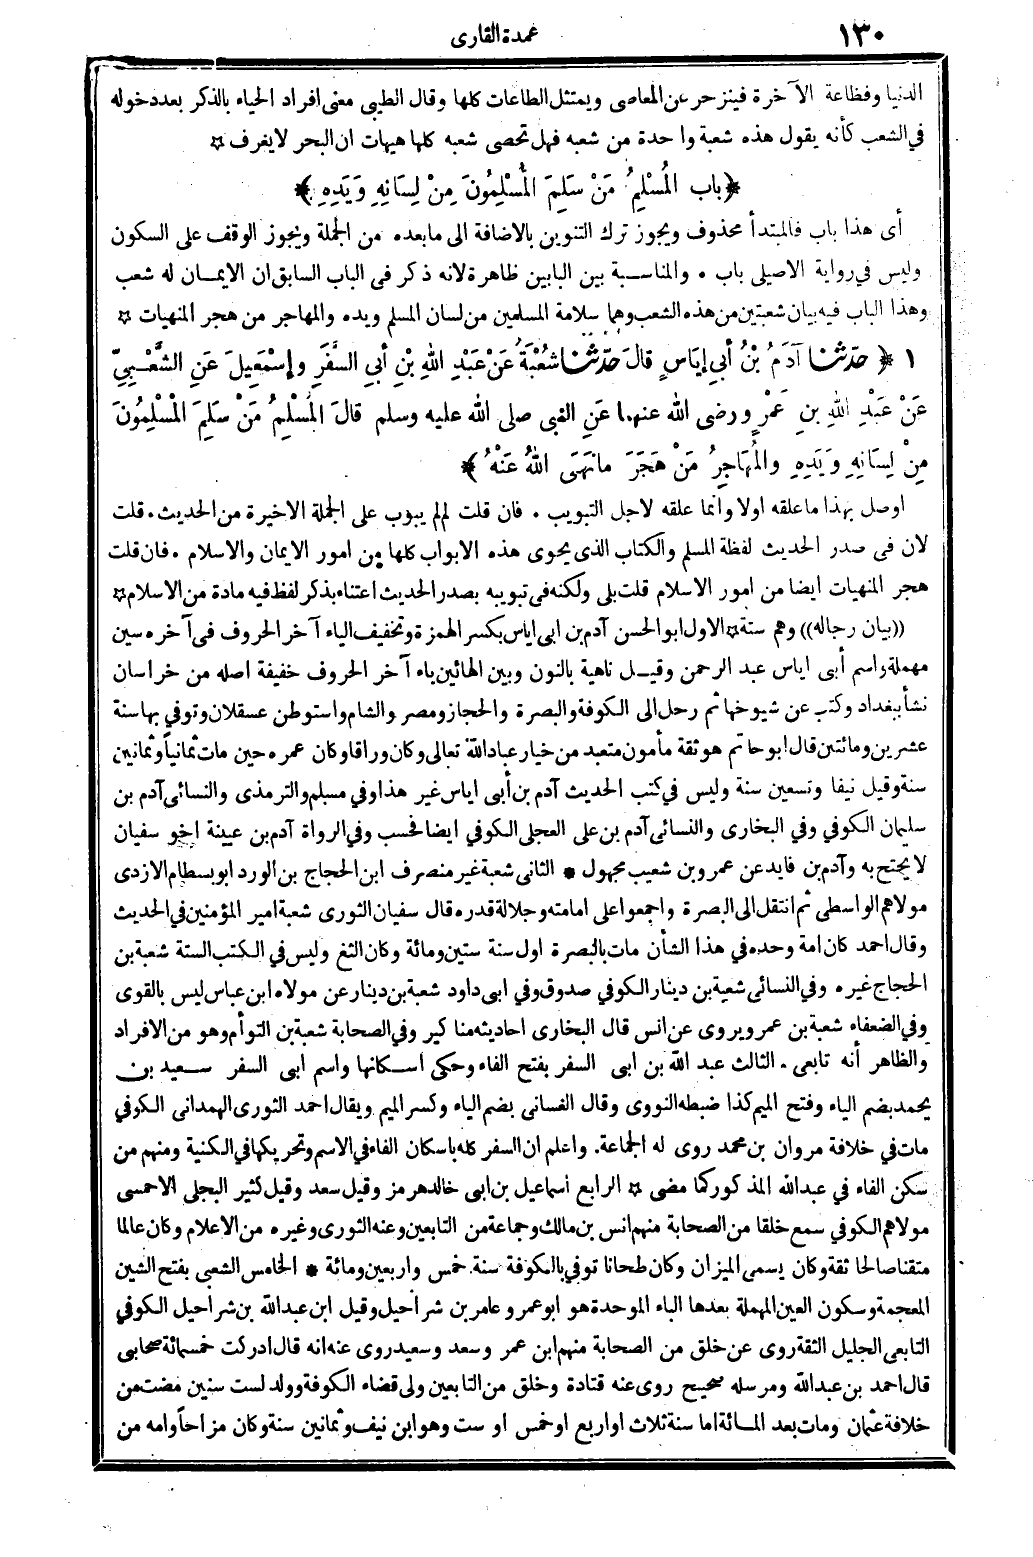 ١٣٠
عمدة القارى
الدنيا وفظاعة الآخرة فينزجر عن المعاصى ويمتثل الطاعات كلها وقال الطيبى معنى افراد الحياء بالذكر بعد دخوله
فى الشعب كأنه يقول هذه شعبة واحدة من شعبه فهل تحصى شعبه كلها هيهات ان البحر لا يغرف ✡
﴿ باب المُسْلِمُ مَنْ سَلِمَ المُسْلِمُونَ مِنْ لِسَانِهِ وَيَدِهِ ﴾
أى هذا باب فالمبتدأ محذوف ويجوز ترك التنوين بالاضافة الى مابعده من الجملة ويجوز الوقف على السكون
وليس فى رواية الاصيلى باب • والمناسبة بين البابين ظاهرة لانه ذكر فى الباب السابق ان الايمان له شعب
وهذا الباب فيه بيان شعبتين من هذه الشعب وهما سلامة المسلمين من لسان المسلم ويده والمهاجر من هجر المنهيات ✡
١ ﴿ حَدَّثَنَا آدَمُ بْنُ أَبِي إِيَاسٍ قَالَ حَدَّثَنَا شُعْبَةُ عَنْ عَبْدِ اللهِ بْنِ أَبِي السَّفَرِ وَإِسْمَعِيلَ عَنِ الشَّعْبِيِّ
عَنْ عَبْدِ اللهِ بنِ عَمْرٍو رضى الله عنهما عَنِ النبى صلى الله عليه وسلم قالَ المُسْلِمُ مَنْ سَلِمَ المُسْلِمُونَ
مِنْ لِسَانِهِ وَيَدِهِ والمُهَاجِرُ مَنْ هَجَرَ مانَهَى اللهُ عَنْهُ ﴾
اوصل بهذا ما علقه اولا وانما علقه لاجل التبويب • فان قلت لم لم يبوب على الجملة الاخيرة من الحديث • قلت
لان فى صدر الحديث لفظة المسلم والكتاب الذى يحوى هذه الابواب كلها من امور الايمان والاسلام • فان قلت
هجر المنهيات ايضا من امور الاسلام قلت بلى ولكنه فى تبويبه بصدر الحديث اعتناء بذكر لفظ فيه مادة من الاسلام ✡
((بيان رجاله)) وهم ستة ✡ الاول ابو الحسن آدم بن ابى اياس بكسر الهمزة وتخفيف الياء آخر الحروف فى آخره سين
مهملة واسم أبى اياس عبد الرحمن وقيل ناهية بالنون وبين الهائين ياء آخر الحروف خفيفة اصله من خراسان
نشأ ببغداد وكتب عن شيوخها ثم رحل الى الكوفة والبصرة والحجاز ومصر والشام واستوطن عسقلان وتوفي بها سنة
عشرين ومائتين قال ابو حاتم هو ثقة مأمون متعبد من خيار عباد الله تعالى وكان وراقا وكان عمره حين مات ثمانياً وثمانين
سنة وقيل نيفا وتسعين سنة وليس في كتب الحديث آدم بن أبى اياس غير هذا وفي مسلم والترمذى والنسائى آدم بن
سليمان الكوفي وفي البخارى والنسائى آدم بن على العجلى الكوفي ايضا فحسب وفي الرواة آدم بن عيينة اخو سفيان
لا يحتج به وآدم بن فايد عن عمرو بن شعيب مجهول • الثانى شعبة غير منصرف ابن الحجاج بن الورد ابو بسطام الازدى
مولاهم الواسطى ثم انتقل الى البصرة واجمعوا على امامته وجلالة قدره قال سفيان الثورى شعبة امير المؤمنين في الحديث
وقال احمد كان امة وحده في هذا الشأن مات بالبصرة اول سنة ستين ومائة وكان الثغ وليس في الكتب الستة شعبة بن
الحجاج غيره وفي النسائى شعبة بن دينار الكوفي صدوق وفي ابى داود شعبة بن دينار عن مولاه ابن عباس ليس بالقوى
وفي الضعفاء شعبة بن عمرو يروى عن انس قال البخارى احاديثه مناكير وفي الصحابة شعبة بن التوأم وهو من الافراد
والظاهر أنه تابعى • الثالث عبد الله بن ابى السفر بفتح الفاء وحكى اسكانها واسم ابى السفر سعيد بن
يحمد بضم الياء وفتح الميم كذا ضبطه النووى وقال الغسانى بضم الياء وكسر الميم ويقال احمد الثورى الهمدانى الكوفي
مات في خلافة مروان بن محمد روى له الجماعة. واعلم ان السفر كله باسكان الفاء في الاسم وتحريكها في الكنية ومنهم من
سكن الفاء في عبد الله المذكور كما مضى ✡ الرابع اسماعيل بن ابى خالد هرمز وقيل سعد وقيل كثير البجلى الاحمسى
مولاهم الكوفي سمع خلقا من الصحابة منهم انس بن مالك وجماعة من التابعين وعنه الثورى وغيره من الاعلام وكان عالما
متقنا صالحا ثقة وكان يسمى الميزان وكان طحانا توفي بالكوفة سنة خمس واربعين ومائة • الخامس الشعبى بفتح الشين
المعجمة وسكون العين المهملة بعدها الباء الموحدة هو ابو عمرو عامر بن شراحيل وقيل ابن عبد الله بن شراحيل الكوفي
التابعى الجليل الثقة روى عن خلق من الصحابة منهم ابن عمر وسعد وسعيد روى عنه انه قال ادركت خمسمائة صحابى
قال احمد بن عبد الله ومرسله صحيح روى عنه قتادة وخلق من التابعين ولى قضاء الكوفة وولد لست سنين مضت من
خلافة عثمان ومات بعد المائة اما سنة ثلاث او اربع او خمس او ست وهو ابن نيف وثمانين سنة وكان مزاحاً وامه من